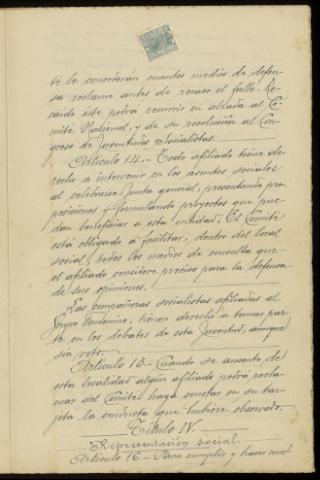 té le concederán cuantos medios de defen-
sa reclame antes de recaer el fallo. Re-
caido este podrá recurrir en alzada al Co-
mité Nacional, y de su resolución al Con-
greso de Juventudes Socialistas.
Artículo 14.- Todo afiliado tiene de-
recho a intervenir en los asuntos sociales
al celebrarse Junta general, presentando pro-
posiciones y formulando proyectos que pue-
dan beneficiar a esta entidad. El Comité
está obligado a facilitar, dentro del local
social, todos los medios de consulta que
el afiliado considere preciso para la defensa
de sus opiniones.
Las compañeras socialistas afiliadas al
Grupo Femenino, tienen derecho a tomar par-
te en los debates de esta Juventud, aunque
sin voto.
Artículo 15.- Cuando se ausente de
esta localidad algún afiliado podrá recla-
mar del Comité haga constar en su tar-
jeta la conducta que hubiere observado.
Título IV.
Representación social.
Artículo 16.- Para cumplir y hacer cum-